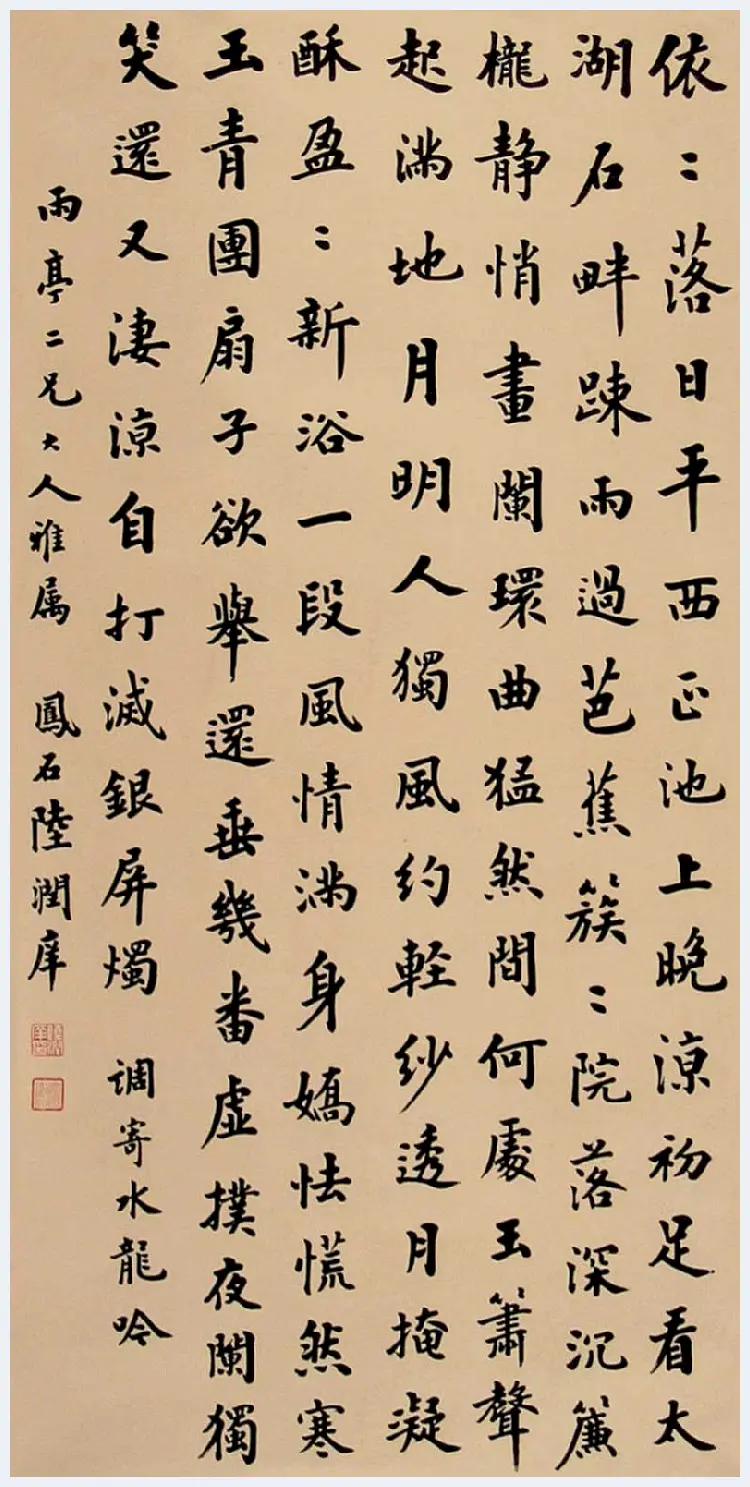 依〻落日平西正池上晚涼初足看太
湖石畔踈雨過芭蕉簇〻院落深沉簾
櫳靜悄畫闌環曲猛然間何處玉簫聲
起滿地月明人獨風約輕紗透月掩凝
酥盈〻新浴一段風情滿身嬌怯慌然寒
玉青團扇子欲舉還垂幾番虛撲夜闌獨
笑還又淒涼自打滅銀屏燭 调寄水龍吟
雨亭二兄大人雅属 鳳石陸潤庠